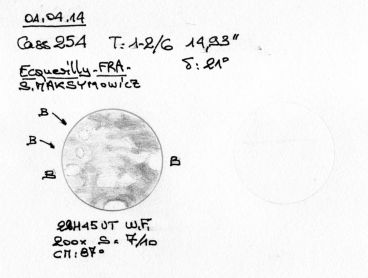 01.04.14
Cass 254 T: 1-2/6 14,93"
Ecquevilly-FRA- δ: 21°
S.MAKSYMOWICZ
B
B
B B
22H45UT W.F.
200x S= 7/10
CM: 87°